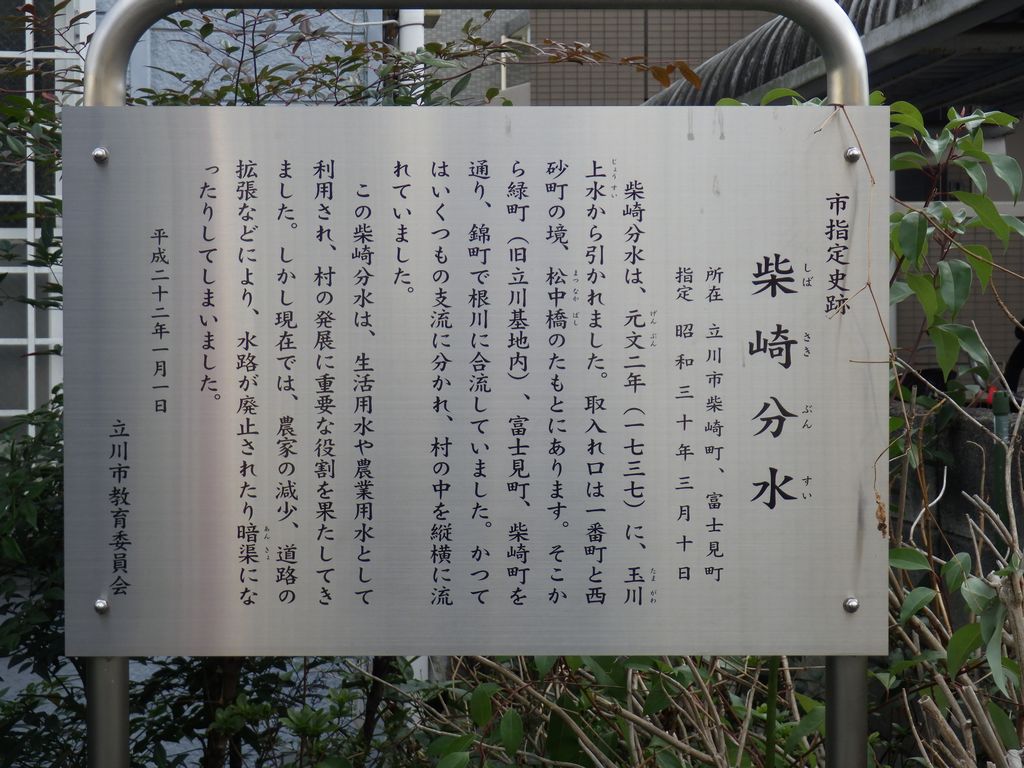 市指定史跡
柴崎分水
しばさきぶんすい
所在 立川市柴崎町、富士見町
指定 昭和三十年三月十日
柴崎分水は、元文二年（一七三七）に、玉川
げんぶん たまがわ
上水から引かれました。取入れ口は一番町と西
じょうすい
砂町の境、松中橋のたもとにあります。そこか
まつなかばし
ら緑町（旧立川基地内）、富士見町、柴崎町を
通り、錦町で根川に合流していました。かつて
はいくつもの支流に分かれ、村の中を縦横に流
れていました。
この柴崎分水は、生活用水や農業用水として
利用され、村の発展に重要な役割を果たしてき
ました。しかし現在では、農家の減少、道路の
拡張などにより、水路が廃止されたり暗渠にな
あんきょ
ったりしてしまいました。
平成二十二年一月一日
立川市教育委員会